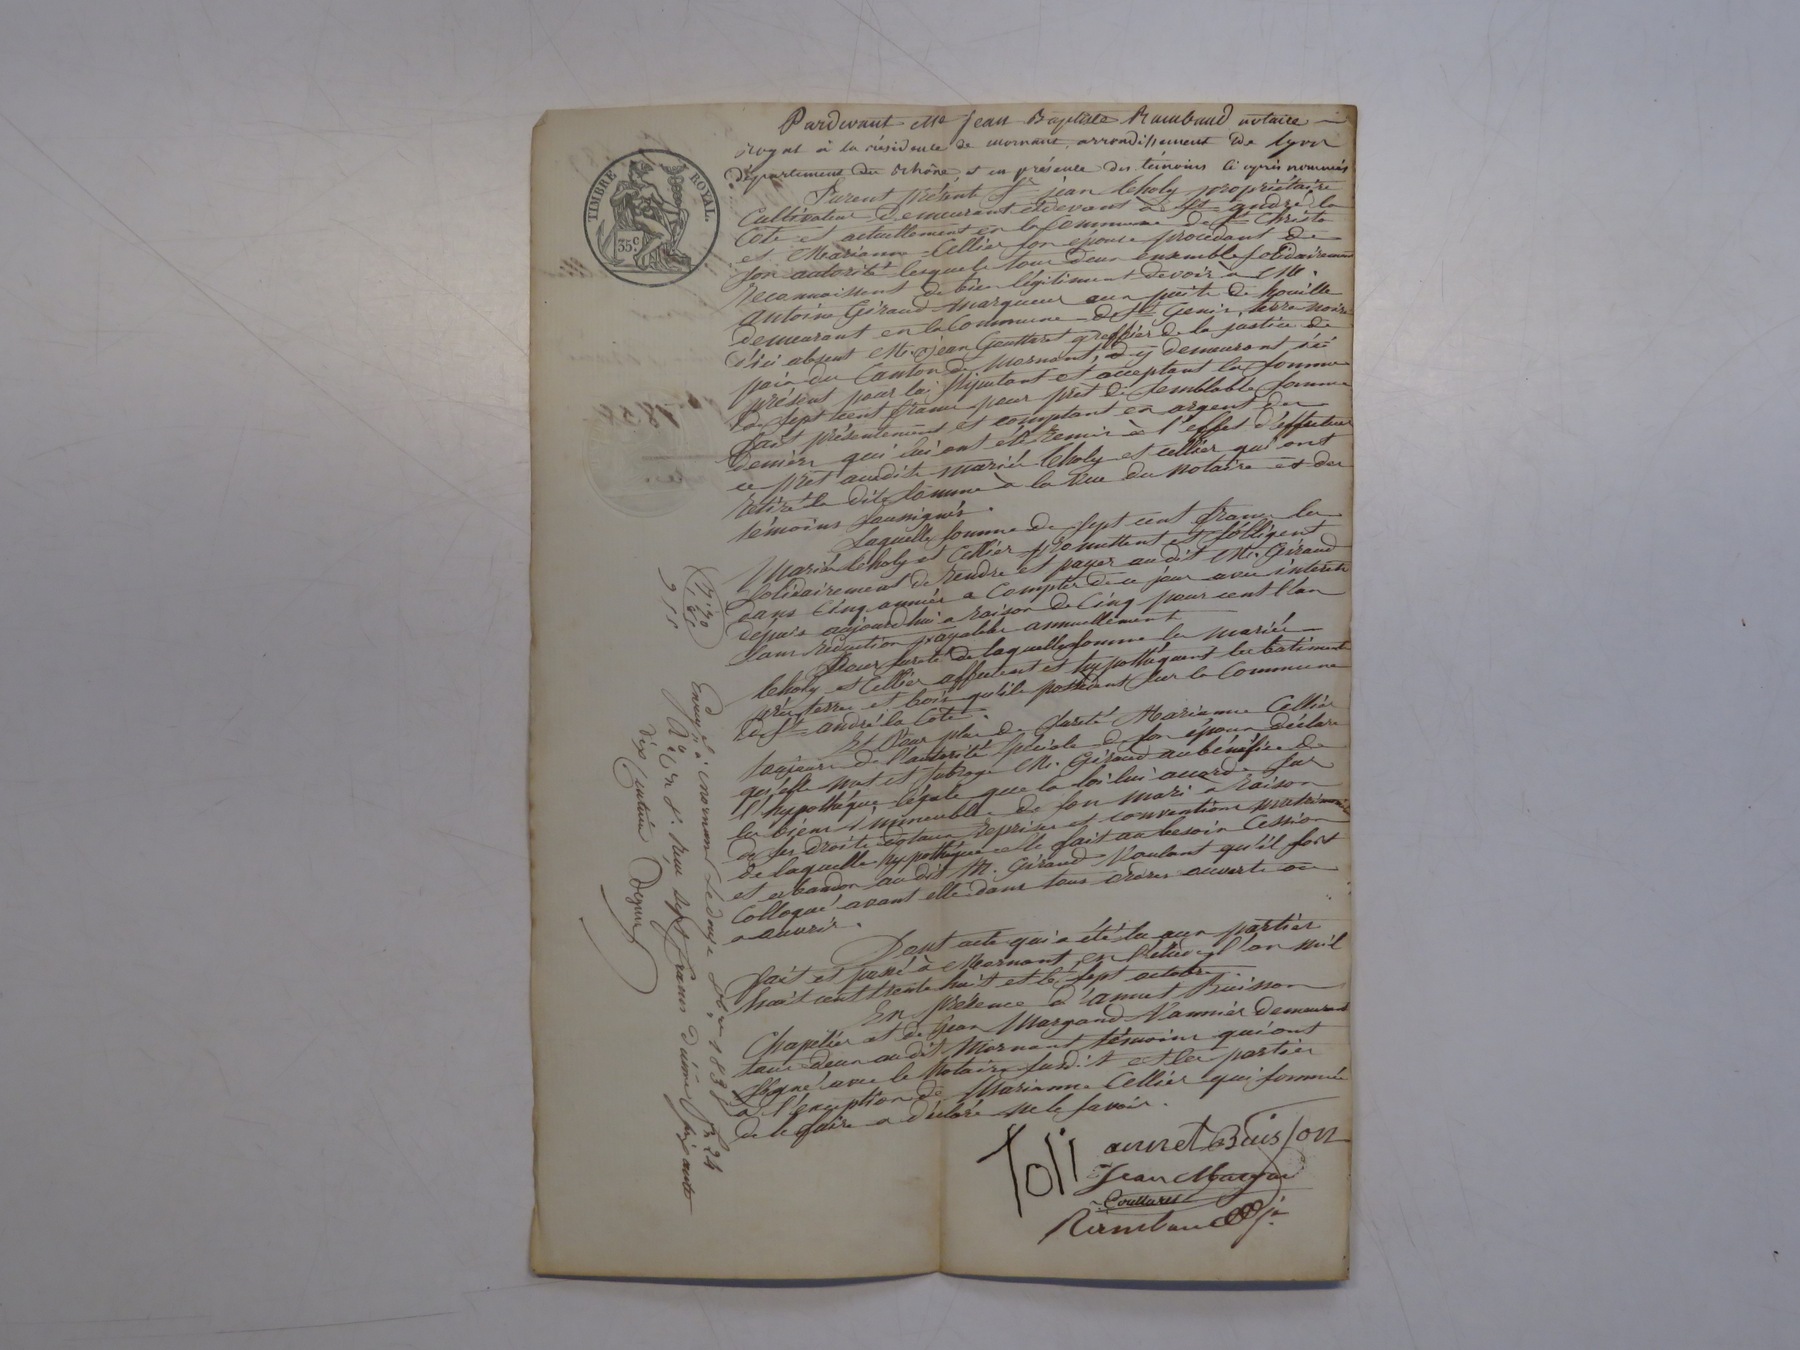 TIMBRE ROYAL.
35c
Pardevant Me Jean Baptiste Rambaud notaire
royal à la résidence de mornant, arrondissement de lyon
département du Rhône, et en présence des témoins ci après nommés
Furent présent Sr jean Choly propriétaire
Cultivateur demeurant cidevant à St andré la
Côte et actuellement en la Commune de St Christo
et Marianne Cellier son épouse procédant de
son autorité lesquels tous deux ensemble solidairement
reconnoissent de bien légitiment devoir à M.
antoine Giraud marqueur aux puits de houille
demeurant en la Commune de St Genis terre noire
d'ici absent Me jean greffier de la justice de
paix du Canton de Mornant, y demeurant ici
présent pour lui stipulant et acceptant la somme
de sept cent francs pour prêt de semblable somme
fait présentement et comptant en argent des
deniers qui lui ont été remis à l'effet d'effectuer
ce pret audits mariés Choly et Cellier qui ont
retiré la dite somme à la vue du notaire et des
témoins soussignés.
Laquelle somme de sept cent francs les
Mariés Choly et Cellier promettent et s'obligent
solidairement de rendre et payer audit M. Giraud
dans Cinq années a Compter de ce jour avec intérets
depuis aujourdhui a raison de Cinq pour cent l'an
sans réduction payable annuellement
Pour sureté de laquelle somme les mariés
Choly et Cellier affectent et hypothéquent les batiments
prés, terres et bois qu'ils possèdent sur la Commune
de St andré la Côte.
Et Pour plus de Sureté Marianne Cellier
toujours de l'autorité spéciale de son épour déclare
qu'elle met et subroge M. Giraud au bénéfice de
l'hypothéque légale que la loi lui accorde sur
les biens immeubles de son mari a raison
de ses droits dotaux reprises et conventions matrimoniales
de laquelle hypothéque elle fait au besoin Cession
et abandon au dit M. Giraud Voulant qu'il soit
Colloqué avant elle dans tous ordres ouverts ou
a ouvrir.
Dont acte qui a été lu aux parties
fait et passé à Mornant, en l'étude l'an mil
huit cent trente huit et le sept octobre.
En présence d'amut Buisson
Chapelier et de Jean Margand Vannier demeurant
tous deux audit Mornant témoins qui ont
signé avec le Notaire susdit et les parties
a l'exception de Marianne Cellier qui sommée
de le faire a déclaré ne le savoir.
Choli amet Buisson
Jean Margan
Rambaud
955
Enregistré à mornant Le douze 8bre 1838 fo 24
Ro Cn 5. reçu sept francs dixième soixante
dix Centimes Deguin